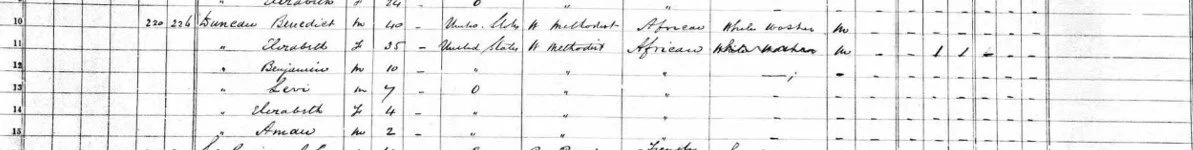 Elizabeth F 24 - O " "
10 220 226 Duncan Benedict M 40 - United States W Methodist African White washer M - - - - - - -
11 " Elizabeth F 35 - United States W Methodist African White washer M - - - 1 1 - -
12 " Benjamin M 10 - " " " - -
13 " Levi M 7 - O " " - - - - - - - - -
14 " Elizabeth F 4 - " " " - - - - - - - - -
15 " Aman M 2 - " " " - - - - - - - - -